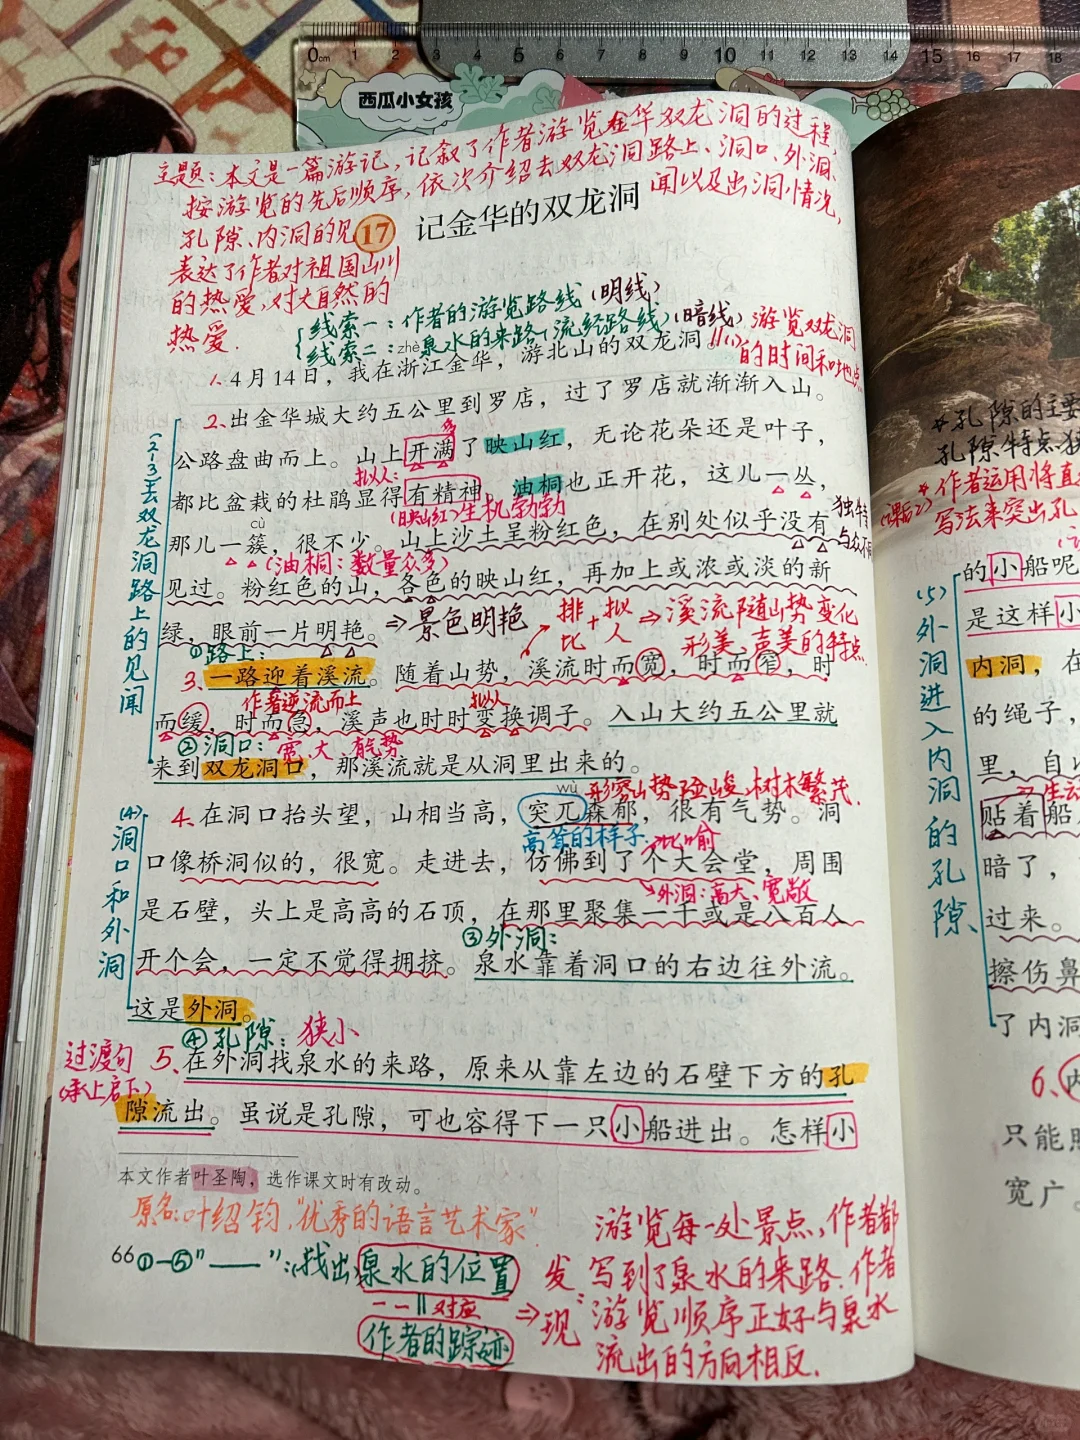 0cm 1 2 3 4 5 6 7 8 9 10 11 12 13 14 15 16 17 18
西瓜小女孩
主题：本文是一篇游记，记叙了作者游览金华双龙洞的过程，
按游览的先后顺序，依次介绍去双龙洞路上、洞口、外洞、
孔隙、内洞的见闻以及出洞情况，
表达了作者对祖国山川
的热爱，对大自然的
热爱.
17 记金华的双龙洞
线索一：作者的游览路线（明线）
线索二：泉水的来路（流经路线）（暗线）
游览双龙洞
的时间和地点
zhè
1. 4月14日，我在浙江金华，游北山的双龙洞。
2. 出金华城大约五公里到罗店，过了罗店就渐渐入山。
公路盘曲而上。山上开满了映山红，无论花朵还是叶子，
多
拟人：
都比盆栽的杜鹃显得有精神。油桐也正开花，这儿一丛，
（映山红）生机勃勃
独特
与众不同
cù
那儿一簇，很不少。山上沙土呈粉红色，在别处似乎没有
（油桐：数量众多）
见过。粉红色的山，各色的映山红，再加上或浓或淡的新
绿，眼前一片明艳。⇒景色明艳
排比+拟人⇒溪流随山势变化
形美、声美的特点.
（2-3）去双龙洞路上的见闻
①路上：
3、一路迎着溪流。随着山势，溪流时而宽，时而窄，时
作者逆流而上
拟人
而缓，时而急，溪声也时时变换调子。入山大约五公里就
②洞口：宽、大、有气势
来到双龙洞口，那溪流就是从洞里出来的。
wù
形容山势险峻，树木繁茂.
（4）洞口和外洞
4、在洞口抬头望，山相当高，突兀森郁，很有气势。洞
高耸的样子
比喻
口像桥洞似的，很宽。走进去，仿佛到了个大会堂，周围
外洞：高大、宽敞
是石壁，头上是高高的石顶，在那里聚集一千或是八百人
③外洞：
开个会，一定不觉得拥挤。泉水靠着洞口的右边往外流。
这是外洞。
④孔隙：狭小
过渡句
（承上启下）
5、在外洞找泉水的来路，原来从靠左边的石壁下方的孔
隙流出。虽说是孔隙，可也容得下一只小船进出。怎样小
本文作者叶圣陶，选作课文时有改动。
原名：叶绍钧，“优秀的语言艺术家”
66
①—⑤“——”：（找出）泉水的位置
对应
作者的踪迹
⇒发现
游览每一处景点，作者都
写到了泉水的来路. 作者
游览顺序正好与泉水
流出的方向相反.
孔隙的主要
孔隙特点：狭
作者运用将直
（课后2）写法来突出孔
（5）外洞进入内洞的孔隙
的小船呢
是这样小
内洞，在
的绳子，
里，自
生动
贴着船
暗了，
过来。
擦伤鼻
了内洞
6、内
只能照
宽广。